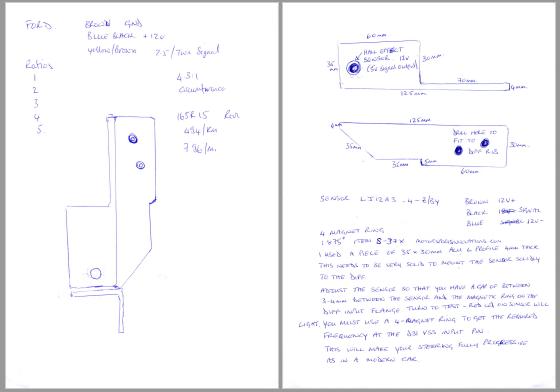 FORD BROWN GND
BLUE BLACK +12V
yellow/Brown /Turn Signal
Ratios
1
2
3
4
5
4.3:1
circumference
165R15
484/km
786/m.
60mm
35mm
HALL EFFECT
SENSOR 12v
(5v signal output)
30mm
70mm
4mm
125mm
125mm
35mm
DRILL HERE TO
FIT TO
DIFF RIB
35mm
5mm
60mm
SENSOR LJ12A3-4-Z/BY BROWN 12V+
BLACK SIGNAL
BLUE 12V-
4 MAGNET RING
1.875" ITEM 8-37X
I USED A PIECE OF 35x30mm L PROFILE 4mm THICK
THIS NEEDS TO BE VERY SOLID TO MOUNT THE SENSOR SOLIDLY
TO THE DIFF
ADJUST THE SENSOR SO THAT YOU HAVE A GAP OF BETWEEN
3-4mm BETWEEN THE SENSOR AND THE MAGNETIC RING ON THE
DIFF INPUT FLANGE TURN TO TEST - RED LED ON SENSOR WILL
LIGHT. YOU MUST USE A 4-MAGNET RING TO GET THE REQUIRED
FREQUENCY AT THE VSS INPUT PIN.
THIS WILL MAKE YOUR STEERING FULLY PROGRESSIVE
AS IN A MODERN CAR